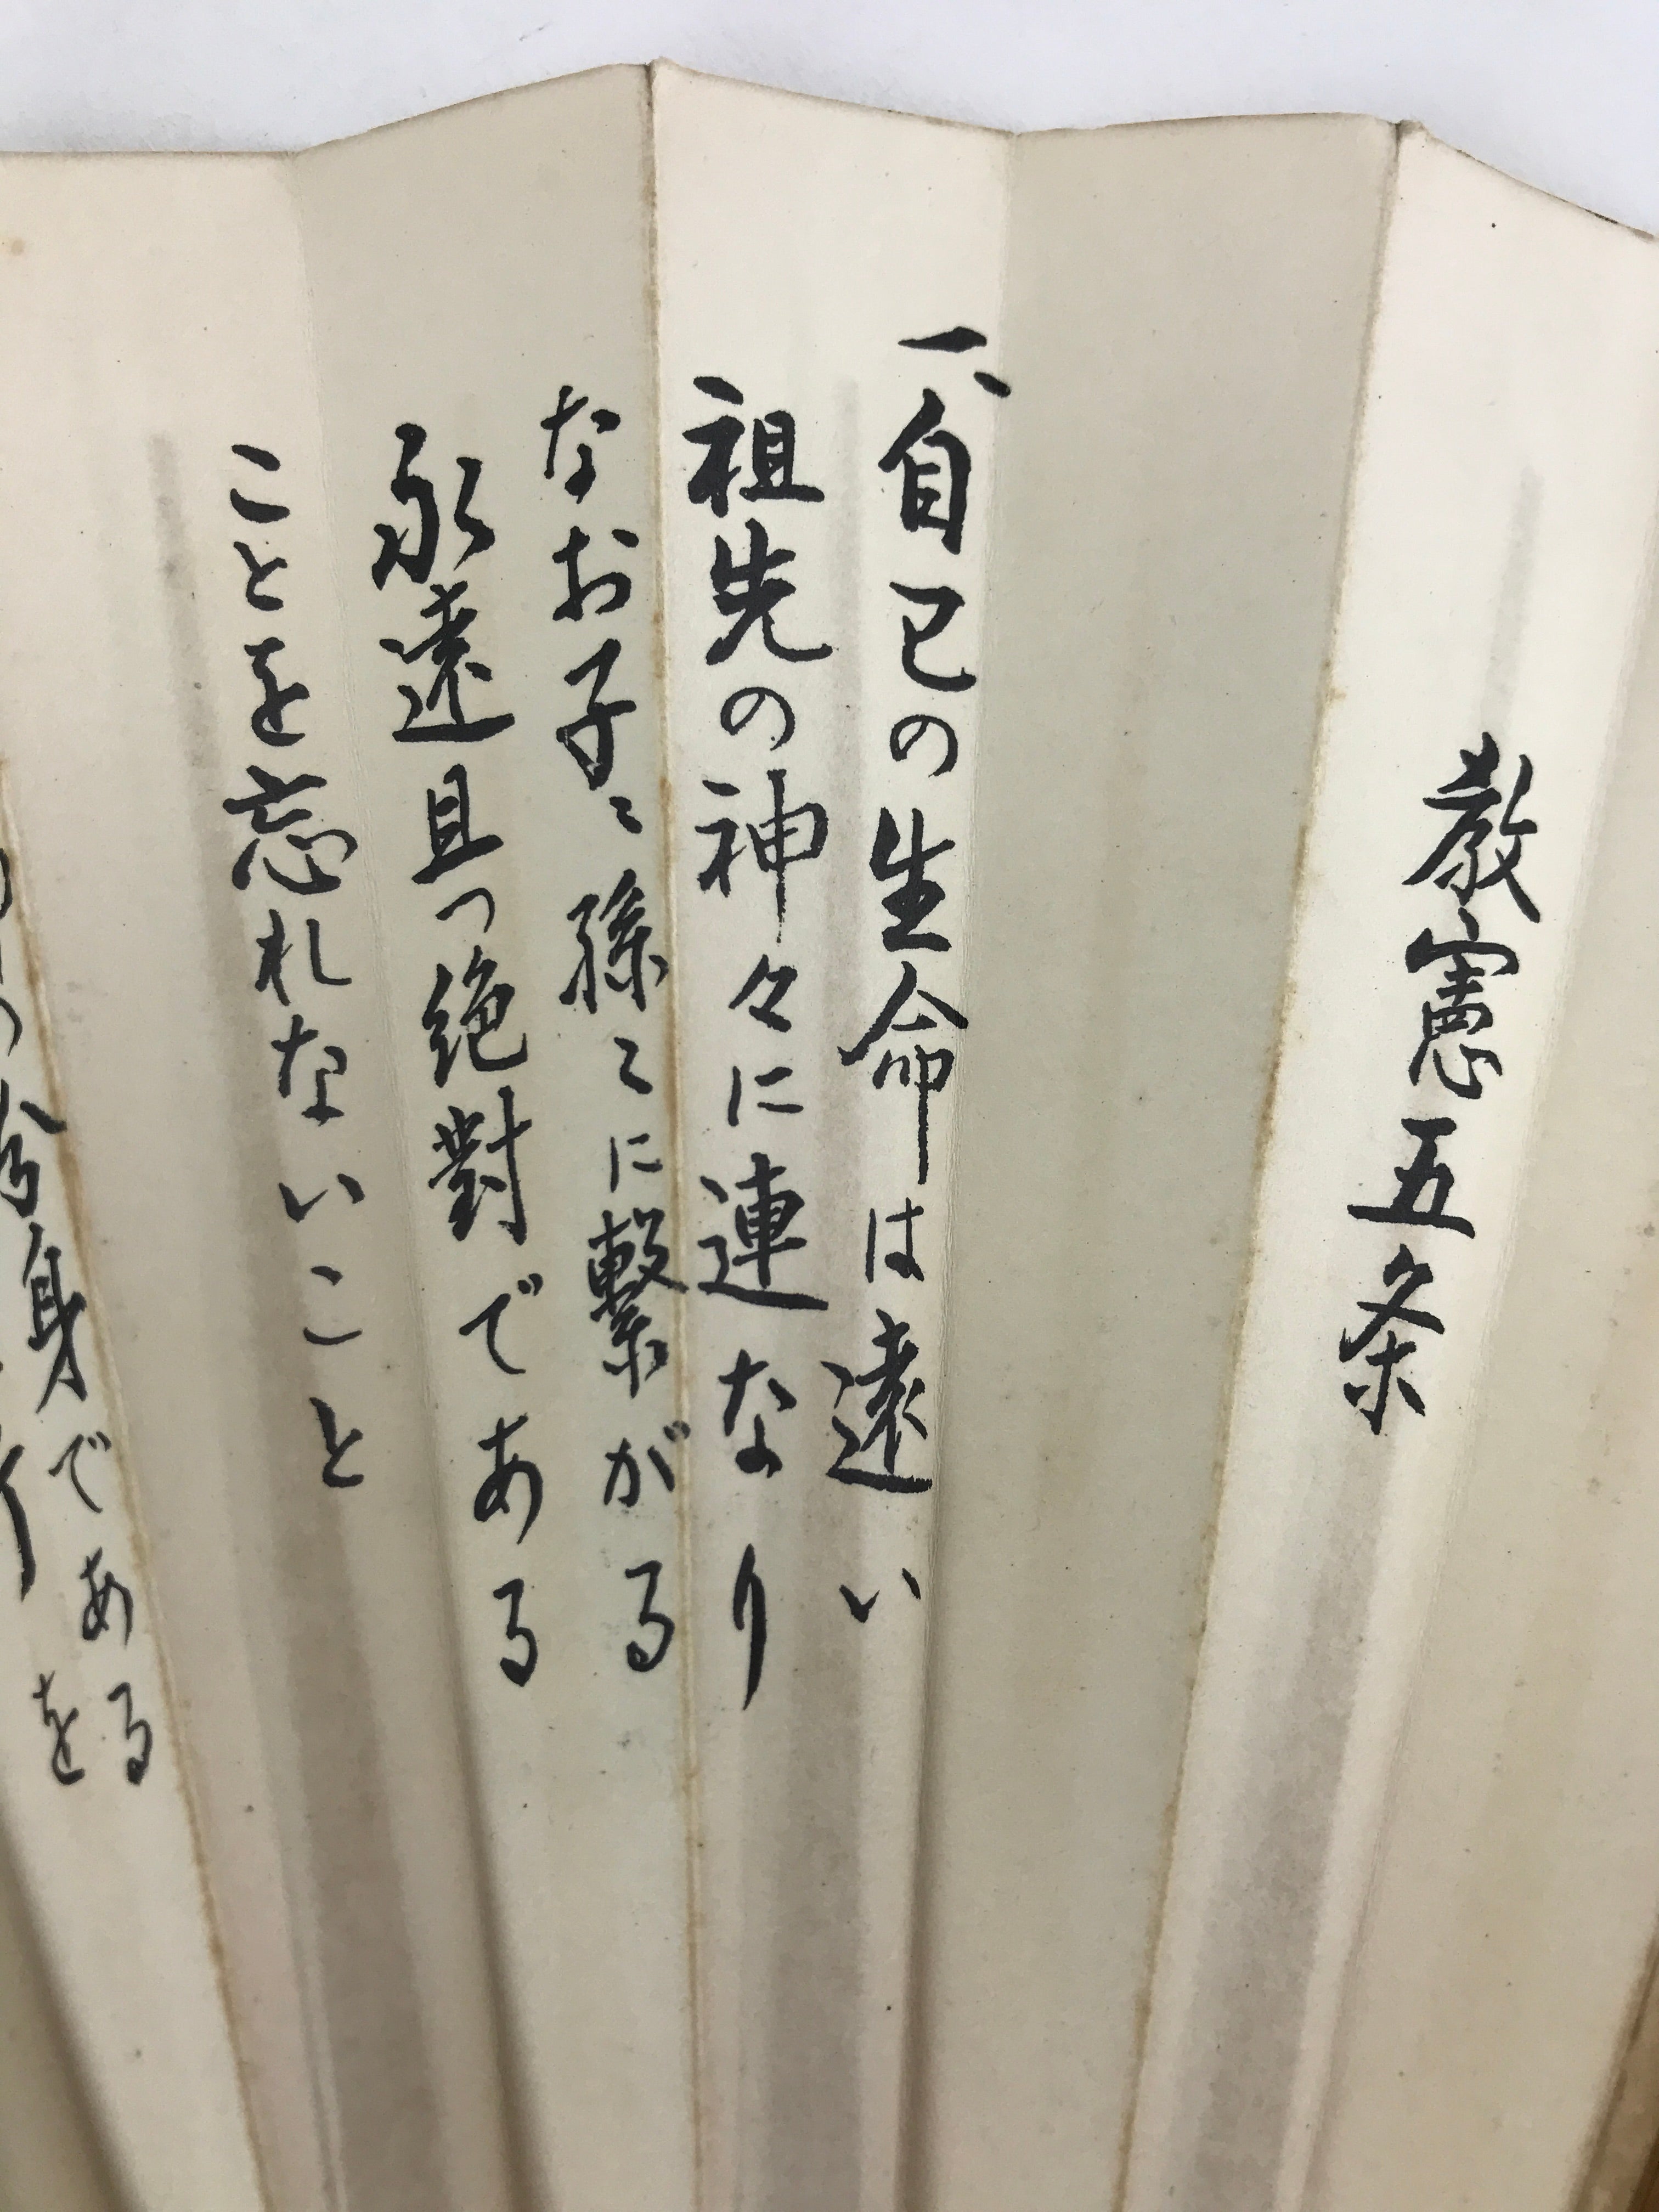 教憲五条
一、自己の生命は遠い
祖先の神々に連なり
なお子々孫々に繋がる
永遠且つ絶對である
ことを忘れないこと
身である
を